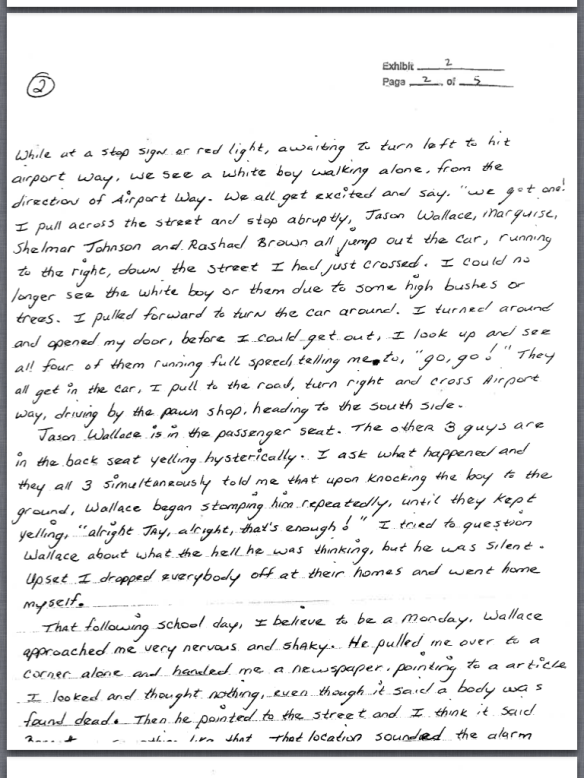 Exhibit 2
Page 2 of 5
2
While at a stop sign or red light, awaiting to turn left to hit
airport way, we see a white boy walking alone, from the
direction of Airport Way. We all get excited and say, "we got one!
I pull across the street and stop abruptly, Jason Wallace, Marquise,
Shelmar Johnson and Rashad Brown all jump out the car, running
to the right, down the street I had just crossed. I could no
longer see the white boy or them due to some high bushes or
trees. I pulled forward to turn the car around. I turned around
and opened my door, before I could get out, I look up and see
all four of them running full speed, telling me to, "go, go!" They
all get in the car, I pull to the road, turn right and cross Airport
way, driving by the pawn shop, heading to the south side.
Jason Wallace is in the passenger seat. The other 3 guys are
in the back seat yelling hysterically. I ask what happened and
they all 3 simultaneously told me that upon knocking the boy to the
ground, Wallace began stomping him repeatedly, until they kept
yelling, "alright Jay, alright, that's enough!" I tried to question
Wallace about what the hell he was thinking, but he was silent.
Upset I dropped everybody off at their homes and went home
myself.
That following school day, I believe to be a Monday, Wallace
approached me very nervous and shaky. He pulled me over to a
corner alone and handed me a newspaper, pointing to a article
I looked and thought nothing, even though it said a body was
found dead. Then he pointed to the street and I think it said
like that that location sounded the alarm